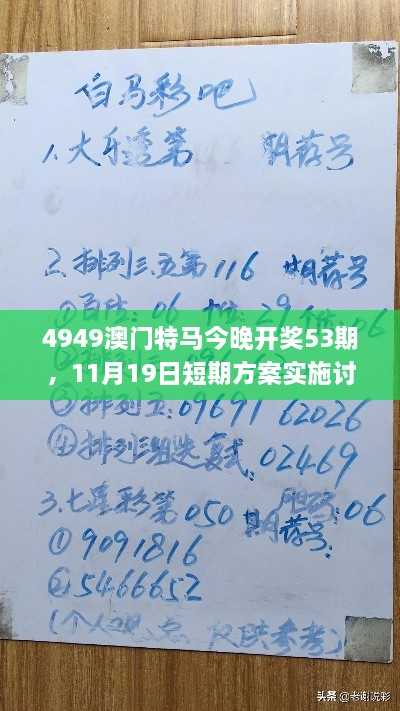 伯马彩吧
1.大乐透第 期荐号
2.排列三.五第116 期荐号
①百位:06 十位:29 个位:06
4949澳门特马今晚开奖53期
,11月19日短期方案实施讨
③排列五:09691 62026
④排列三组选复式:02469
3.七星彩第050期荐号: 胆码:06
①9091816
②5466652
(个人观点 仅供参考)
头条@老谢说彩